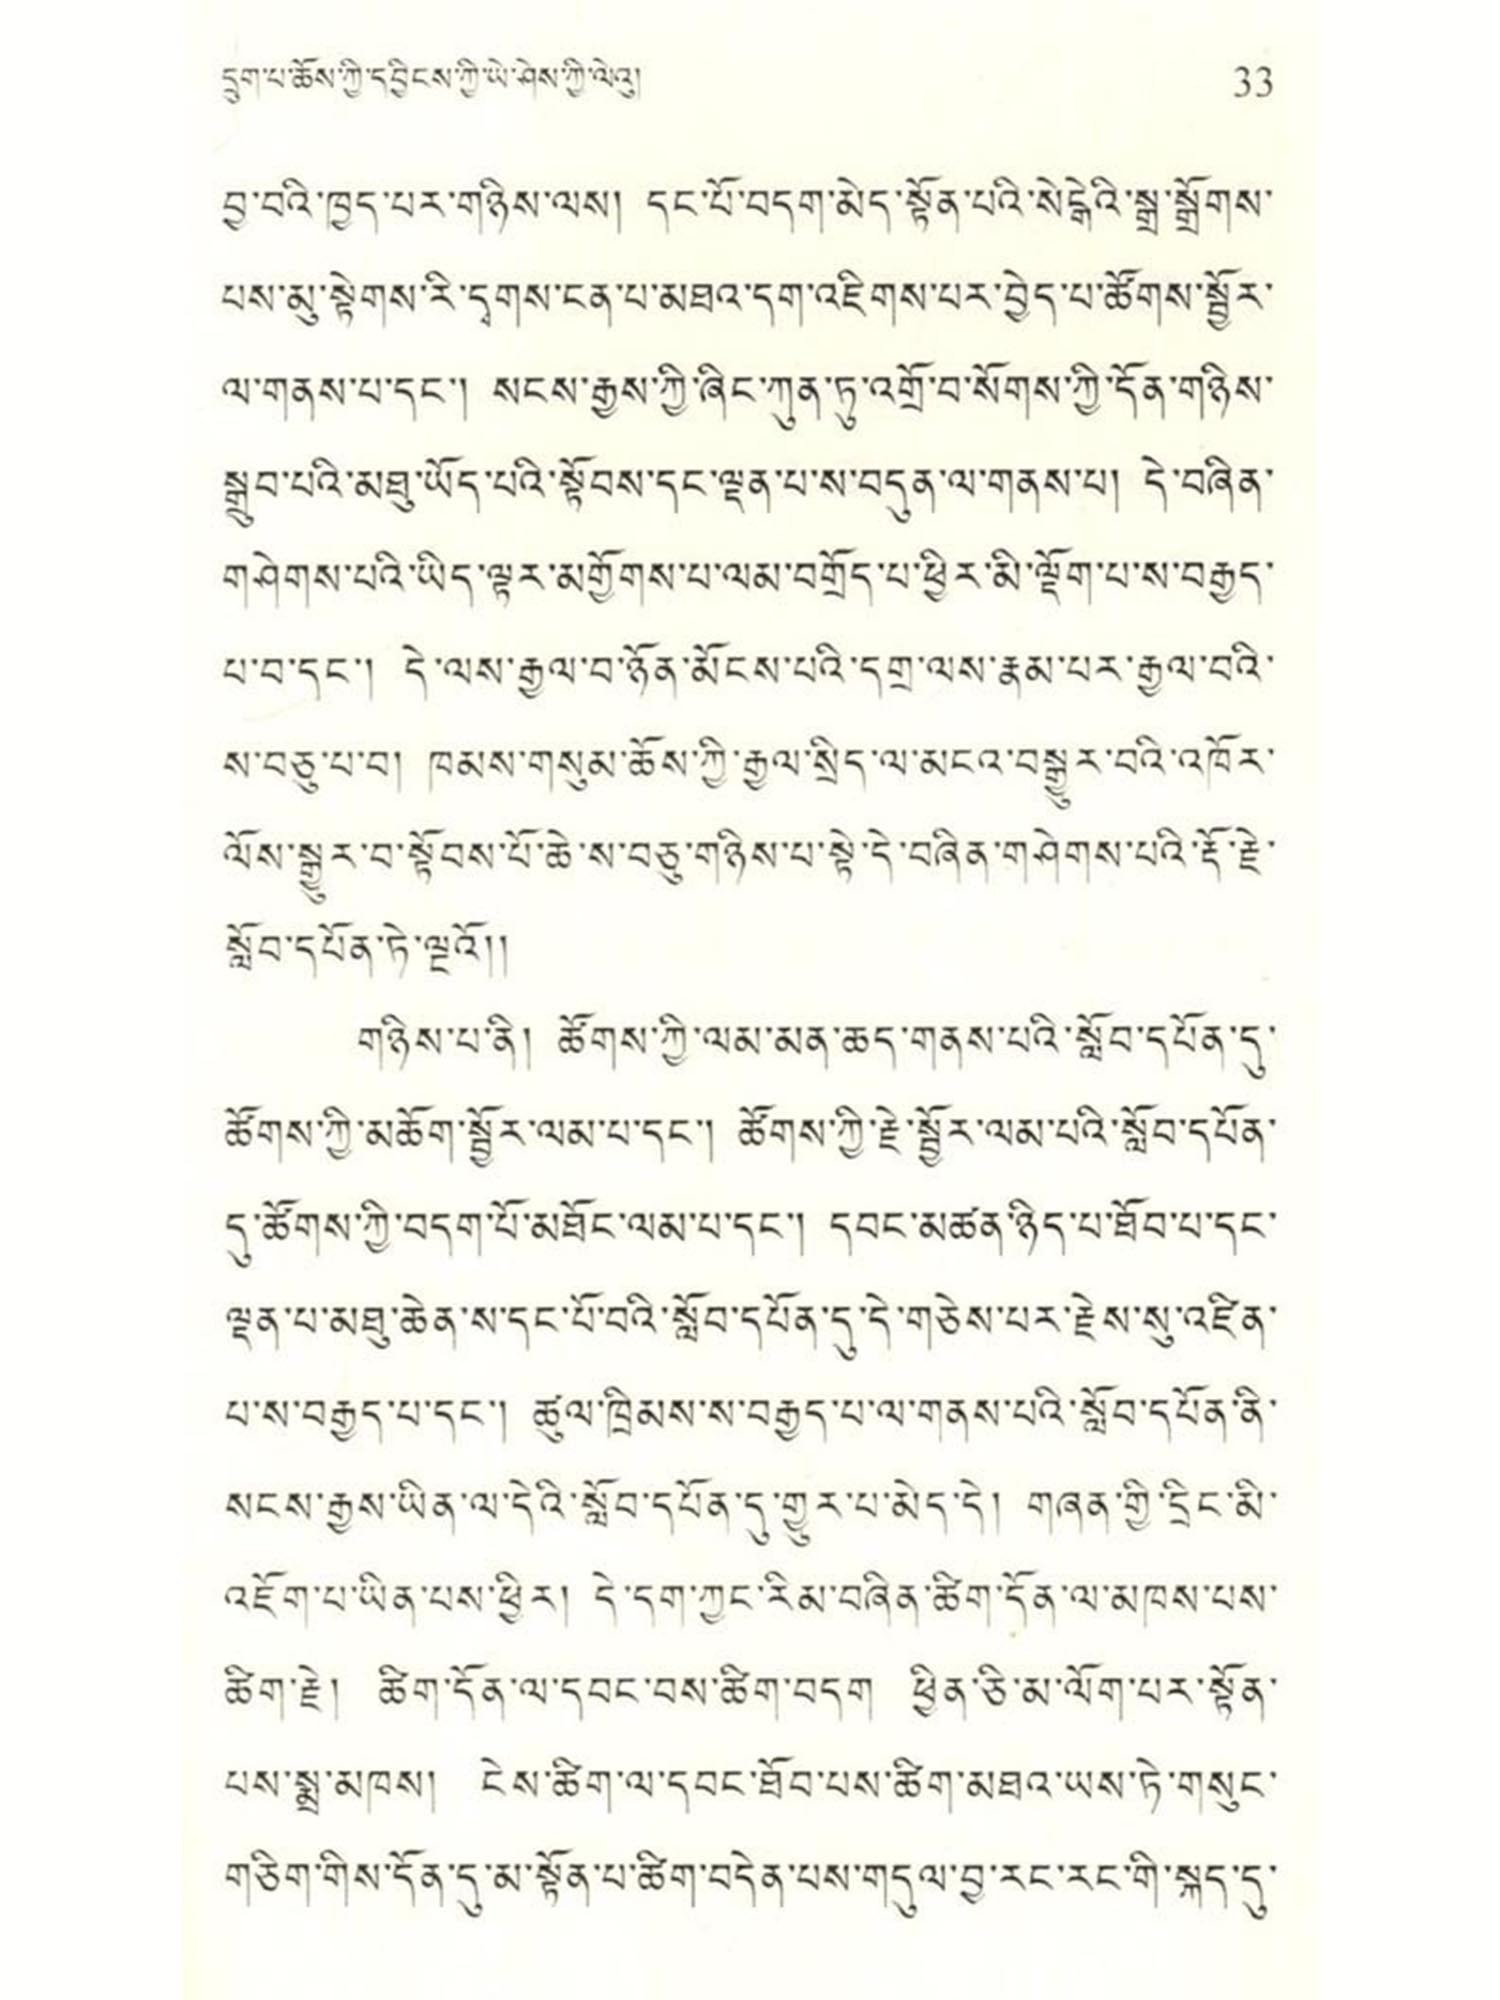 དྲུག་པ་ཆོས་ཀྱི་དབྱིངས་ཀྱི་ཡེ་ཤེས་ཀྱི་ལེའུ།
33
བྱ་བའི་ཁྱད་པར་གཉིས་ལས། དང་པོ་བདག་མེད་སྟོན་པའི་སེངྒེའི་སྒྲ་སྒྲོགས་
པས་མུ་སྟེགས་རི་དྭགས་ངན་པ་མཐའ་དག་འཇིགས་པར་བྱེད་པ་ཚོགས་སྦྱོར་
ལ་གནས་པ་དང་། སངས་རྒྱས་ཀྱི་ཞིང་ཀུན་ཏུ་འགྲོ་བ་སོགས་ཀྱི་དོན་གཉིས་
སྒྲུབ་པའི་མཐུ་ཡོད་པའི་སྟོབས་དང་ལྡན་པ་ས་བདུན་ལ་གནས་པ། དེ་བཞིན་
གཤེགས་པའི་ཡིད་ལྟར་མགྱོགས་པ་ལམ་བགྲོད་པ་ཕྱིར་མི་ལྡོག་པ་ས་བརྒྱད་
པ་བ་དང་། དེ་ལས་རྒྱལ་བ་ཉོན་མོངས་པའི་དགྲ་ལས་རྣམ་པར་རྒྱལ་བའི་
ས་བཅུ་པ་བ། ཁམས་གསུམ་ཆོས་ཀྱི་རྒྱལ་སྲིད་ལ་མངའ་བསྒྱུར་བའི་འཁོར་
ལོས་སྒྱུར་བ་སྟོབས་པོ་ཆེ་ས་བཅུ་གཉིས་པ་སྟེ་དེ་བཞིན་གཤེགས་པའི་རྡོ་རྗེ་
སློབ་དཔོན་ཏེ་ལྔའོ།།
གཉིས་པ་ནི། ཚོགས་ཀྱི་ལམ་མན་ཆད་གནས་པའི་སློབ་དཔོན་དུ་
ཚོགས་ཀྱི་མཆོག་སྦྱོར་ལམ་པ་དང་། ཚོགས་ཀྱི་རྗེ་སྦྱོར་ལམ་པའི་སློབ་དཔོན་
དུ་ཚོགས་ཀྱི་བདག་པོ་མཐོང་ལམ་པ་དང་། དབང་མཚན་ཉིད་པ་ཐོབ་པ་དང་
ལྡན་པ་མཐུ་ཆེན་ས་དང་པོ་བའི་སློབ་དཔོན་དུ་དེ་གཅེས་པར་རྗེས་སུ་འཛིན་
པ་ས་བརྒྱད་པ་དང་། ཚུལ་ཁྲིམས་ས་བརྒྱད་པ་ལ་གནས་པའི་སློབ་དཔོན་ནི་
སངས་རྒྱས་ཡིན་ལ་དེའི་སློབ་དཔོན་དུ་གྱུར་པ་མེད་དེ། གཞན་གྱི་དྲིང་མི་
འཇོག་པ་ཡིན་པས་ཕྱིར། དེ་དག་ཀྱང་རིམ་བཞིན་ཚིག་དོན་ལ་མཁས་པས་
ཚིག་རྗེ། ཚིག་དོན་ལ་དབང་བས་ཚིག་བདག ཕྱིན་ཅི་མ་ལོག་པར་སྟོན་
པས་སྨྲ་མཁས། ངེས་ཚིག་ལ་དབང་ཐོབ་པས་ཚིག་མཐའ་ཡས་ཏེ་གསུང་
གཅིག་གིས་དོན་དུ་མ་སྟོན་པ་ཚིག་བདེན་པས་གདུལ་བྱ་རང་རང་གི་སྐད་དུ་